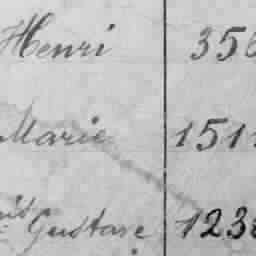 Henri 356
Marie 1511
Gustave 1238